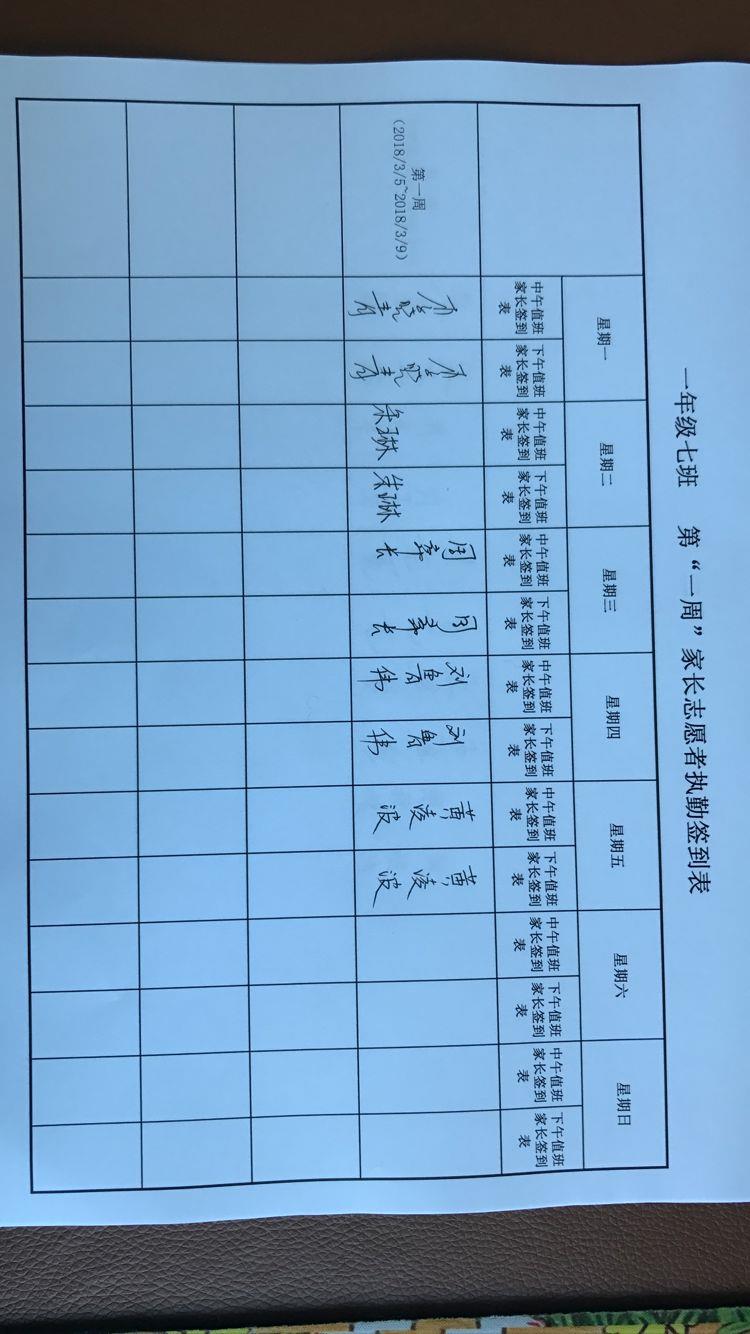 一年级七班 第“一周”家长志愿者执勤签到表
星期一 星期二 星期三 星期四 星期五 星期六 星期日
中午值班家长签到表 下午值班家长签到表 中午值班家长签到表 下午值班家长签到表 中午值班家长签到表 下午值班家长签到表 中午值班家长签到表 下午值班家长签到表 中午值班家长签到表 下午值班家长签到表 中午值班家长签到表 下午值班家长签到表 中午值班家长签到表 下午值班家长签到表
第一周
(2018/3/5~2018/3/9)
朱琳 朱琳 周 长 周 长 刘鲁伟 刘鲁伟 黄凌波 黄凌波